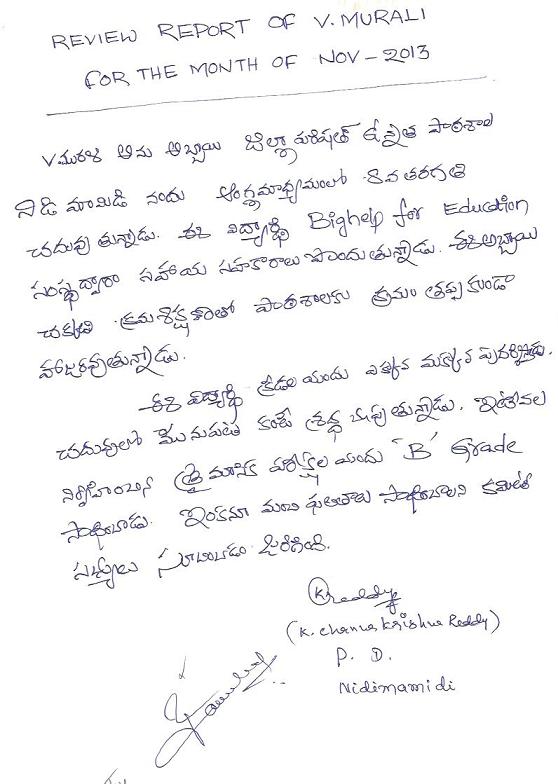 REVIEW REPORT OF V. MURALI
FOR THE MONTH OF NOV - 2013
V.మురళి అను అబ్బాయి జిల్లా పరిషత్ ఉన్నత పాఠశాల
నిడిమామిడి నందు ఆంగ్లమాధ్యమంలో 8వ తరగతి
చదువుతున్నాడు. ఈ విద్యార్థి Bighelp for Education
సంస్థ ద్వారా సహాయ సహకారాలు పొందుతున్నాడు. ఈ అబ్బాయి
చక్కటి క్రమశిక్షణతో పాఠశాలకు క్రమం తప్పకుండా
హాజరవుతున్నాడు.
ఈ విద్యార్థి క్రీడల యందు ఎక్కువ మక్కువ
చదువులో మునుపటి కంటే శ్రద్ధ చూపుతున్నాడు. ఇటీవల
నిర్వహించిన త్రైమాసిక పరీక్షల యందు "B" Grade
సాధించాడు. ఇంకనూ మంచి ఫలితాలు సాధించాలని కమిటీ
సభ్యులు సూచించడం జరిగింది.
KReddy
(K. Chenna Krishna Reddy)
P. D.
Nidimamidi